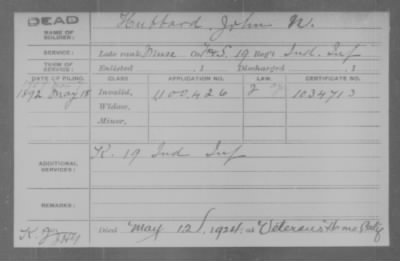 DEAD
NAME OF SOLDIER: Hubbard, John N.
SERVICE: Late rank, Co. F&S, 19 Reg't Ind. Inf
TERM OF SERVICE: Enlisted , 1 Discharged , 1
DATE OF FILING. CLASS APPLICATION NO. LAW. CERTIFICATE NO.
1892 May 18 Invalid, 1100426 1034713
Widow,
Minor,
ADDITIONAL SERVICES: K. 19 Ind Inf
REMARKS:
Died May 12, 1924, at Veterans Home